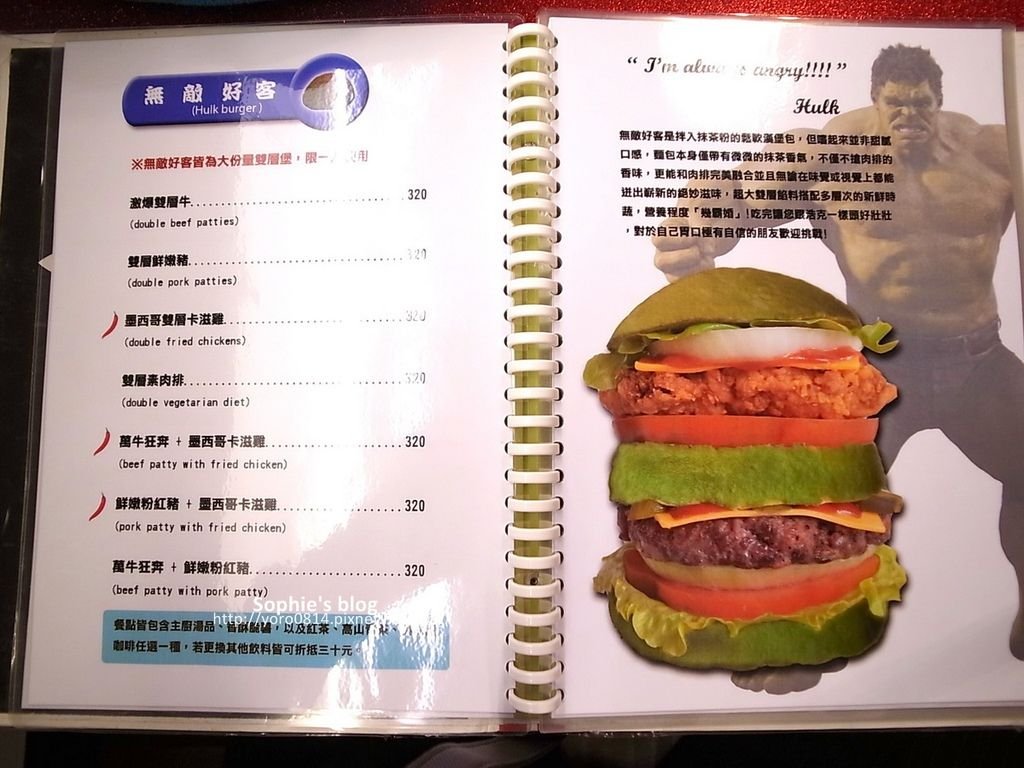 無敵好客
(Hulk burger)
※無敵好客皆為大份量雙層堡，限一人使用
激爆雙層牛 320
(double beef patties)
雙層鮮嫩豬 320
(double pork patties)
墨西哥雙層卡滋雞 320
(double fried chickens)
雙層素肉排 320
(double vegetarian diet)
萬牛狂奔 + 墨西哥卡滋雞 320
(beef patty with fried chicken)
鮮嫩粉紅豬 + 墨西哥卡滋雞 320
(pork patty with fried chicken)
萬牛狂奔 + 鮮嫩粉紅豬 320
(beef patty with pork patty)
餐點皆包含主廚湯品、香酥脆薯，以及紅茶、高山青茶、
咖啡任選一種，若更換其他飲料皆可折抵三十元。
Sophie's blog
http://yoro0814.pixne
“ I'm always angry!!!! ”
Hulk
無敵好客是拌入抹茶粉的鬆軟漢堡包，但嚐起來並非甜膩
口感，麵包本身僅帶有微微的抹茶香氣，不僅不搶肉排的
香味，更能和肉排完美融合並且無論在味覺或視覺上都能
迸出嶄新的絕妙滋味，超大雙層餡料搭配多層次的新鮮時
蔬，營養程度「幾霸婚」!吃完讓您跟浩克一樣頭好壯壯
，對於自己胃口極有自信的朋友歡迎挑戰!